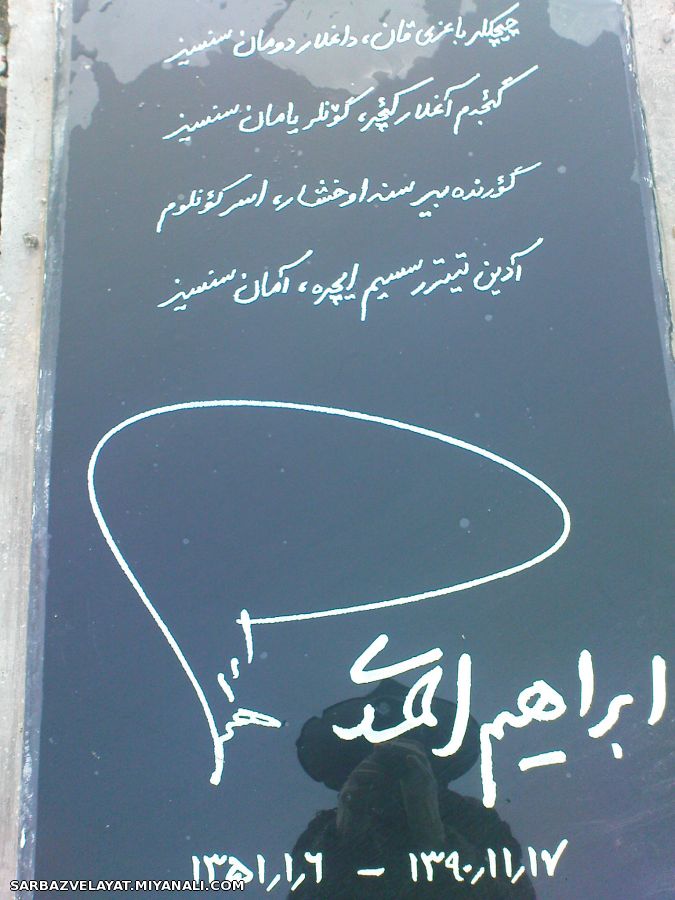 چیچکلر باغری قان، داغلار دومان سنسیز
گئجم آغلار کئچر، گونلر یامان سنسیز
گؤرنده هیر سنه اوخشار، اسر کؤنلوم
آدین تیتر سسیم ایچره، آمان سنسیز
ابراهیم احمدی
۱۳۵۱٫۱٫۶ – ۱۳۹۰٫۱۱٫۱۷
SARBAZVELAYAT.MIYANALI.COM